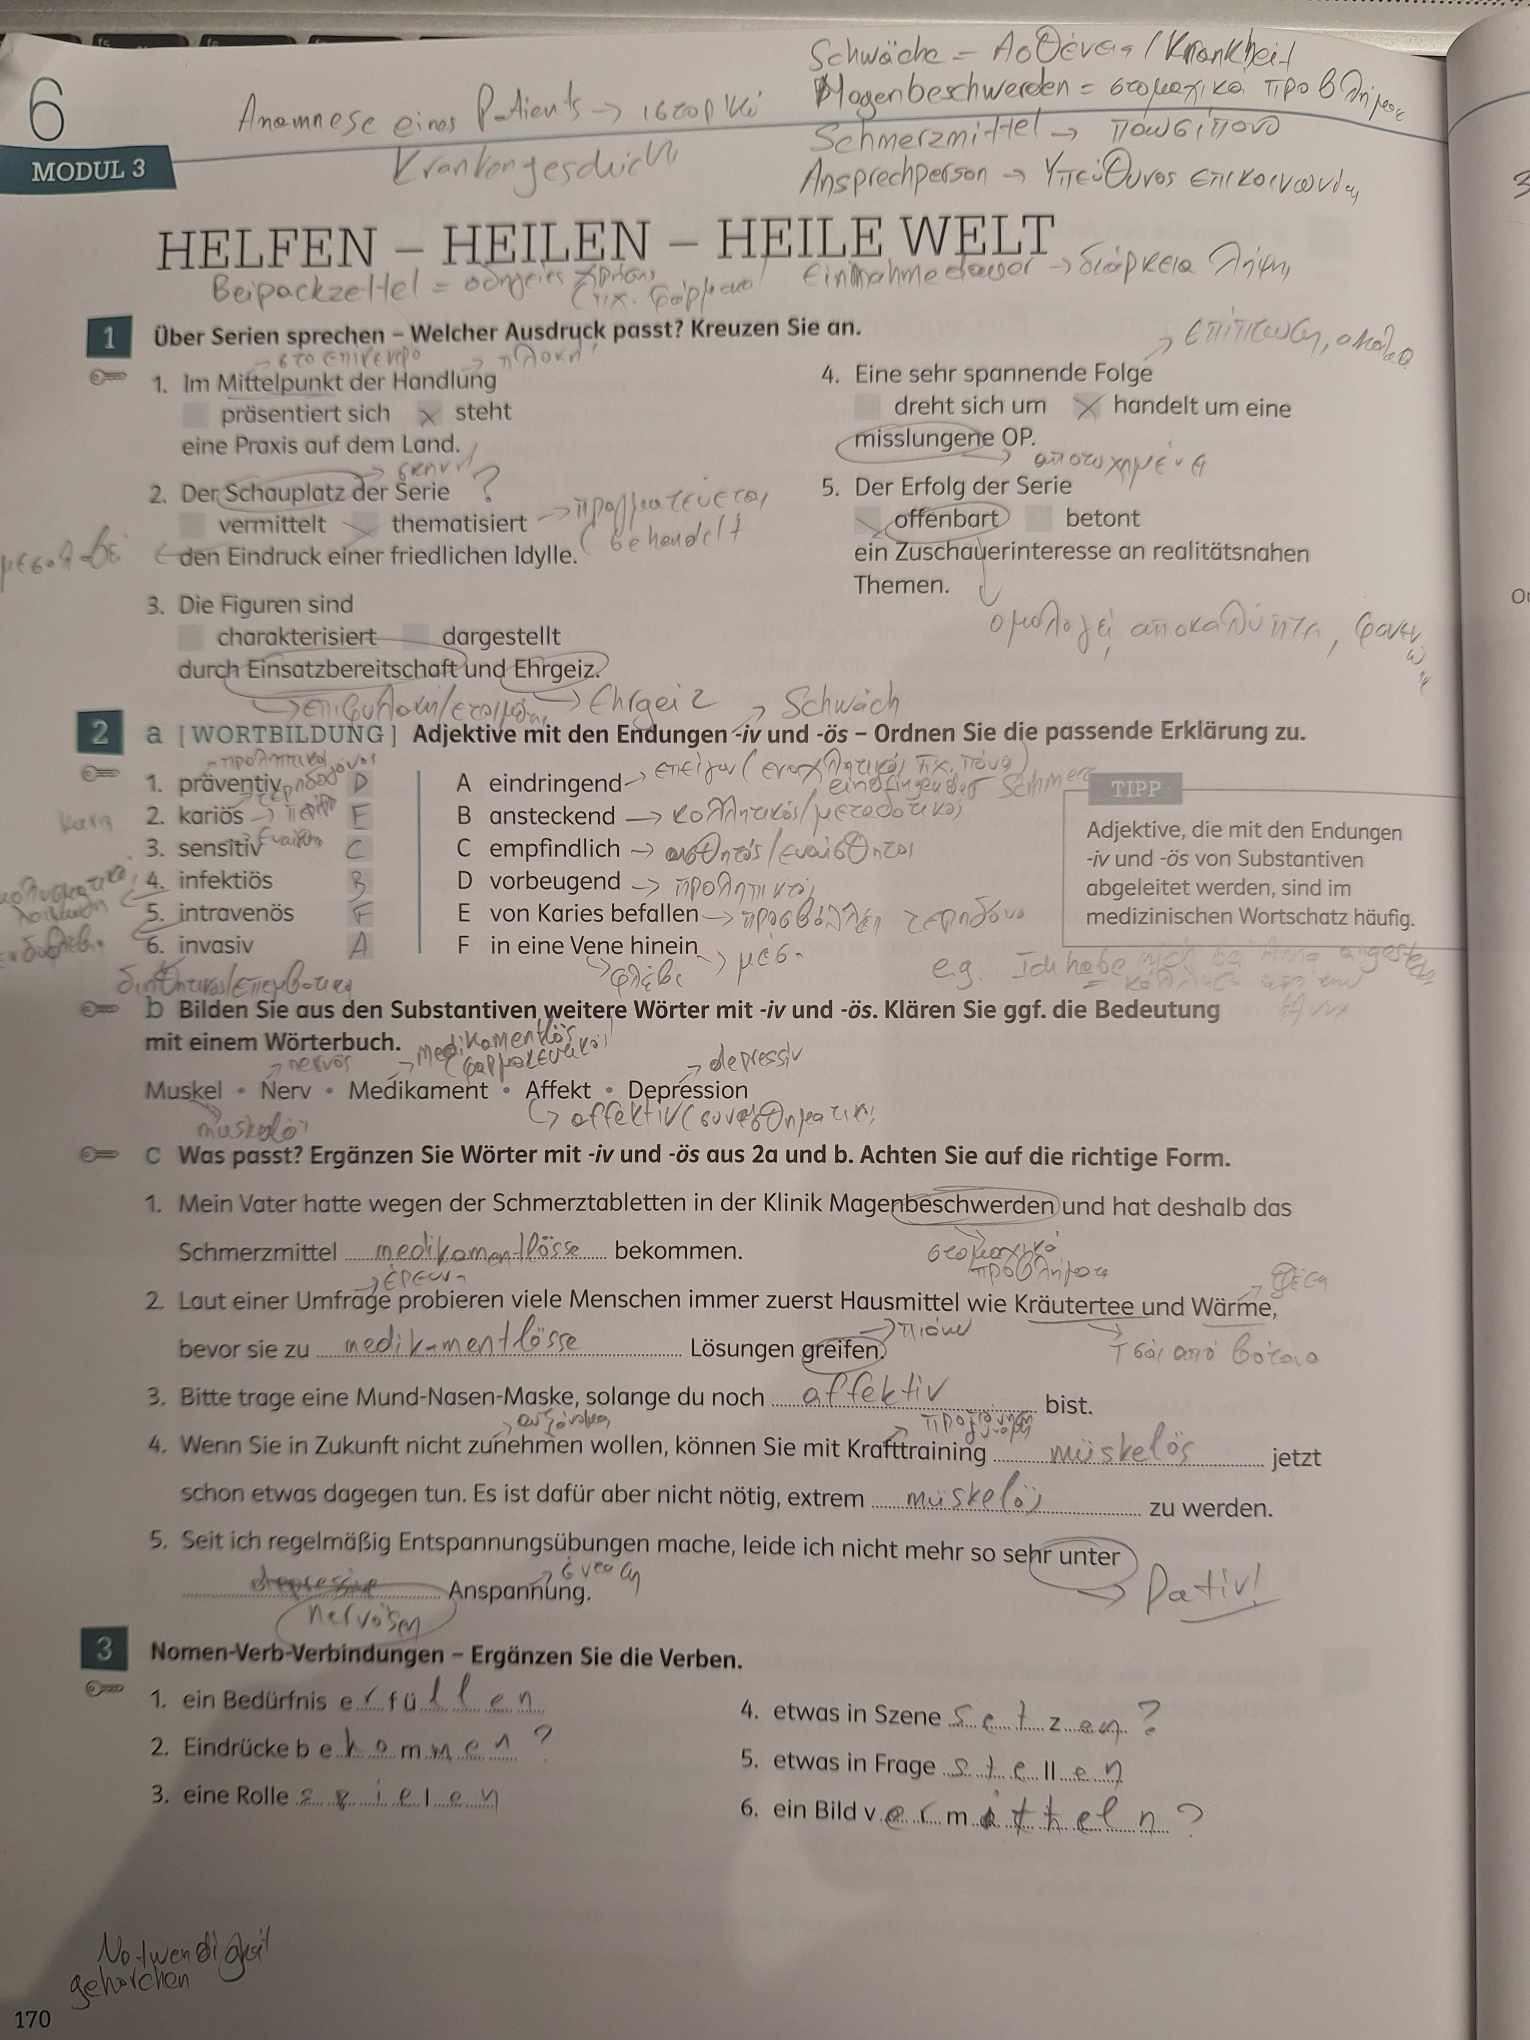 Schwäche = Ασθένεια / Krankheit
Magenbeschwerden = στομαχικά προβλήματα
Anamnese eines Patients → ιστορικό
Schmerzmittel → παυσίπονο
Krankengeschicht
Ansprechperson → Υπεύθυνος επικοινωνίας
6
MODUL 3
HELFEN – HEILEN – HEILE WELT
Beipackzettel = οδηγίες χρήσης
Einnahmedauer → διάρκεια λήψης
1 Über Serien sprechen – Welcher Ausdruck passt? Kreuzen Sie an.
→ στο επίκεντρο → πλοκή
1. Im Mittelpunkt der Handlung
präsentiert sich x steht
eine Praxis auf dem Land.
→ σκηνή
2. Der Schauplatz der Serie ?
vermittelt thematisiert → πραγματεύεται
(behandelt
den Eindruck einer friedlichen Idylle.
3. Die Figuren sind
charakterisiert dargestellt
durch Einsatzbereitschaft und Ehrgeiz.
→ Ehrgeiz
4. Eine sehr spannende Folge
dreht sich um x handelt um eine
misslungene OP.
5. Der Erfolg der Serie
offenbart betont
ein Zuschauerinteresse an realitätsnahen
Themen.
ομολογεί, αποκαλύπτει,
→ Schwäch
2 a [WORTBILDUNG] Adjektive mit den Endungen -iv und -ös – Ordnen Sie die passende Erklärung zu.
1. präventiv D
2. kariös E
3. sensitiv C
4. infektiös B
5. intravenös F
6. invasiv A
A eindringend
B ansteckend → κολλητικός/μεταδοτικός
C empfindlich → αισθητός/ευαίσθητος
D vorbeugend → προληπτικός
E von Karies befallen → προσβάλλει τερηδόνα
F in eine Vene hinein
TIPP
Adjektive, die mit den Endungen
-iv und -ös von Substantiven
abgeleitet werden, sind im
medizinischen Wortschatz häufig.
e.g. Ich habe mich bei Anna angesteckt
b Bilden Sie aus den Substantiven weitere Wörter mit -iv und -ös. Klären Sie ggf. die Bedeutung
mit einem Wörterbuch.
→ nervös → medikamentös → depressiv
Muskel • Nerv • Medikament • Affekt • Depression
muskelös → affektiv
c Was passt? Ergänzen Sie Wörter mit -iv und -ös aus 2a und b. Achten Sie auf die richtige Form.
1. Mein Vater hatte wegen der Schmerztabletten in der Klinik Magenbeschwerden und hat deshalb das
Schmerzmittel medikamentlösse bekommen.
στομαχικά
προβλήματα
2. Laut einer Umfrage probieren viele Menschen immer zuerst Hausmittel wie Kräutertee und Wärme,
bevor sie zu medikamentlösse Lösungen greifen.
τσάι από βότανα
3. Bitte trage eine Mund-Nasen-Maske, solange du noch affektiv bist.
4. Wenn Sie in Zukunft nicht zunehmen wollen, können Sie mit Krafttraining müskelös jetzt
schon etwas dagegen tun. Es ist dafür aber nicht nötig, extrem müskelös zu werden.
5. Seit ich regelmäßig Entspannungsübungen mache, leide ich nicht mehr so sehr unter
depressive Anspannung.
nervösen
→ Dativ!
3 Nomen-Verb-Verbindungen – Ergänzen Sie die Verben.
1. ein Bedürfnis erfüllen
2. Eindrücke bekommen ?
3. eine Rolle spielen
4. etwas in Szene setzen ?
5. etwas in Frage stellen
6. ein Bild vermitteln ?
Notwendigkeit
gehorchen
170